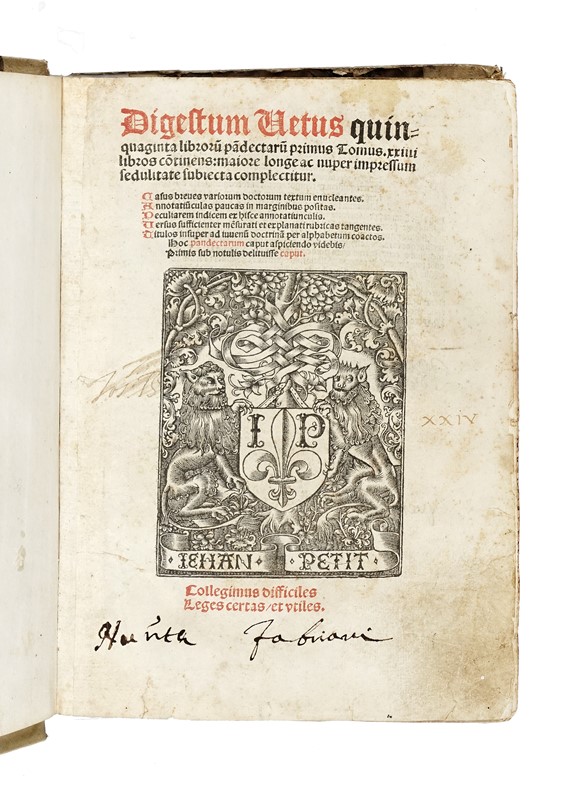 Digestum Uetus quin⸗
quaginta librorũ pãdectarũ primus Tomus.xxiiii
libros cõtinens:maiore longe ac nuper impressum
sedulitate subiecta complectitur.
Casus breues variorum doctorum textum enucleantes.
Annotatiũculas paucas in marginibus positas.
Peculiarem indicem ex hisce annotatiunculis.
Uersus sufficienter mẽsurati et explanati rubricas tangentes.
Titulos insuper ad iuuenũ doctrinã per alphabetum coactos.
Hoc pandectarum caput aspiciendo videbis/
Primis sub notulis delituisse caput.
I P
XXIV
IEHAN PETIT
Collegimus difficiles
Leges certas/et vtiles.